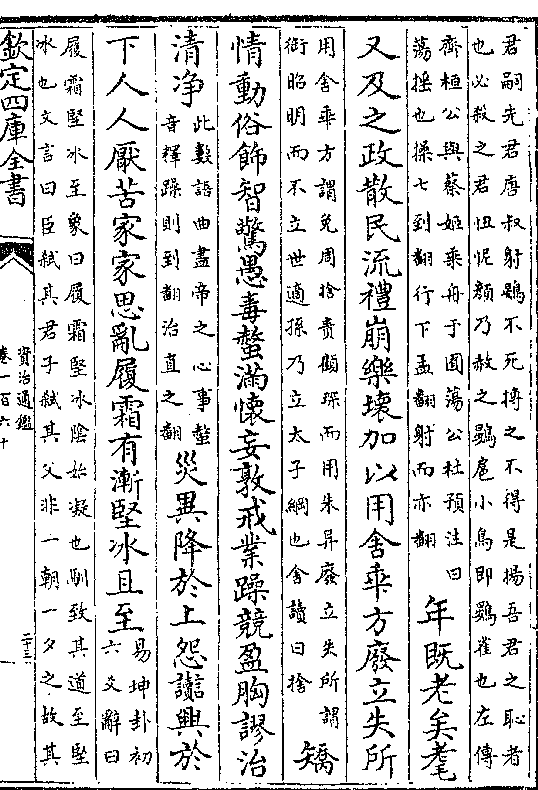 君嗣先君唐叔射鴳不死搏之不得是揚吾君之恥者
也必殺之君忸怩顔乃赦之鴳扈小鳥即鴳雀也左傳
齊桓公與蔡姬乘舟于囿蕩公杜預注曰
蕩揺也操七到翻行下孟翻射而亦翻
年既老矣耄
又及之政散民流禮崩樂壞加以用舍乖方廢立失所
用舍乖方謂免周捨責顧琛而用朱异廢立失所謂
衒昭明而不立世適孫乃立太子綱也舍讀曰捨
矯
情動俗飾智驚愚毒螫滿懷妄敦戒業躁競盈胸謬治
清净
此數語曲盡帝之心事螫
音釋躁則到翻治直之翻
災異降於上怨讟興於
下人人厭苦家家思亂履霜有漸堅冰且至
易坤卦初
六爻辭曰
履霜堅冰至象曰履霜堅冰陰始凝也馴致其道至堅
冰也文言曰臣弑其君子弑其父非一朝一夕之故其
欽定四庫全書
資治通鑑
卷一百六十
二十三